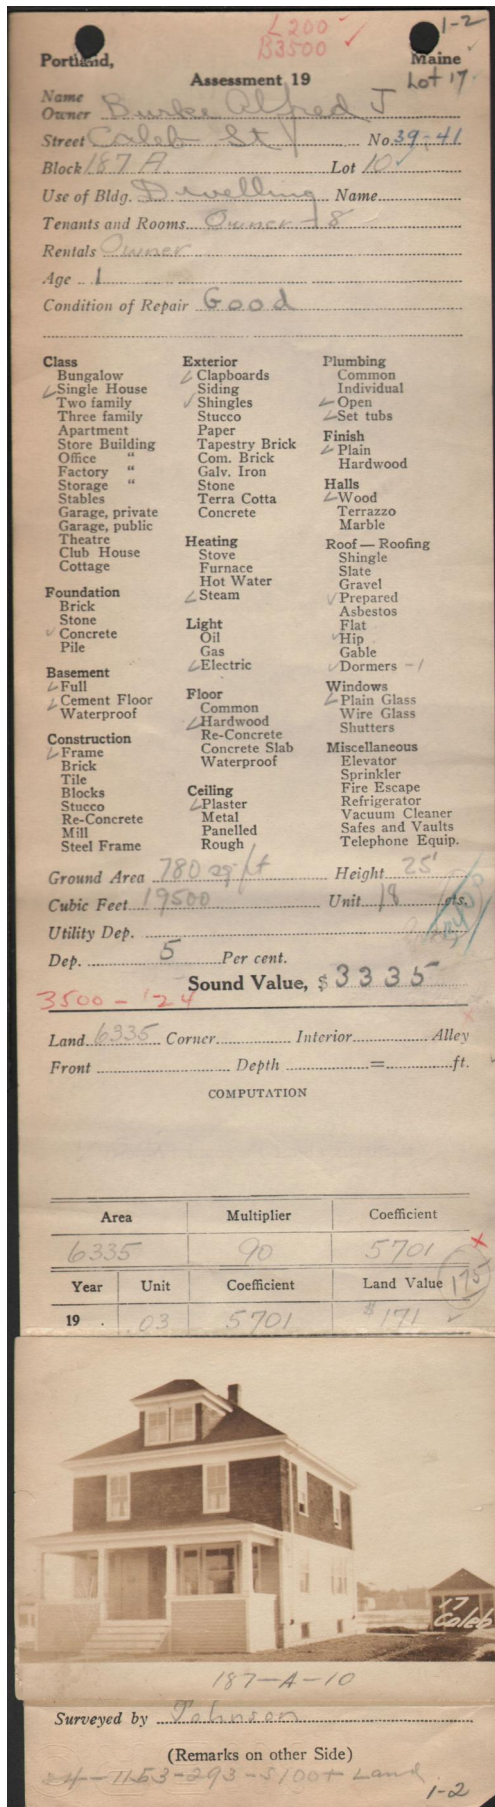 L 200
B3500
1-2
Portland, Maine
Assessment 19
Lot 17
Name
Owner Burke Alfred J
Street Caleb St No. 39-41
Block 187 A Lot 10
Use of Bldg. Dwelling Name
Tenants and Rooms Owner - 8
Rentals Owner
Age 1
Condition of Repair Good
Class
Bungalow
Single House
Two family
Three family
Apartment
Store Building
Office "
Factory "
Storage "
Stables
Garage, private
Garage, public
Theatre
Club House
Cottage
Foundation
Brick
Stone
Concrete
Pile
Basement
Full
Cement Floor
Waterproof
Construction
Frame
Brick
Tile
Blocks
Stucco
Re-Concrete
Mill
Steel Frame
Exterior
Clapboards
Siding
Shingles
Stucco
Paper
Tapestry Brick
Com. Brick
Galv. Iron
Stone
Terra Cotta
Concrete
Heating
Stove
Furnace
Hot Water
Steam
Light
Oil
Gas
Electric
Floor
Common
Hardwood
Re-Concrete
Concrete Slab
Waterproof
Ceiling
Plaster
Metal
Panelled
Rough
Plumbing
Common
Individual
Open
Set tubs
Finish
Plain
Hardwood
Halls
Wood
Terrazzo
Marble
Roof — Roofing
Shingle
Slate
Gravel
Prepared
Asbestos
Flat
Hip
Gable
Dormers - 1
Windows
Plain Glass
Wire Glass
Shutters
Miscellaneous
Elevator
Sprinkler
Fire Escape
Refrigerator
Vacuum Cleaner
Safes and Vaults
Telephone Equip.
Ground Area 780 sq ft Height 25'
Cubic Feet 19500 Unit 18 cts.
Utility Dep.
Dep. 5 Per cent.
Sound Value, $ 3335
3500 - '24
Land 6335 Corner Interior Alley
Front Depth = ft.
COMPUTATION
Area Multiplier Coefficient
6335 90 5701
Year Unit Coefficient Land Value 175
19 .03 5701 $171
17
Caleb
187-A-10
Surveyed by Johnson
(Remarks on other Side)
24-1153-293-5100+ Land
1-2